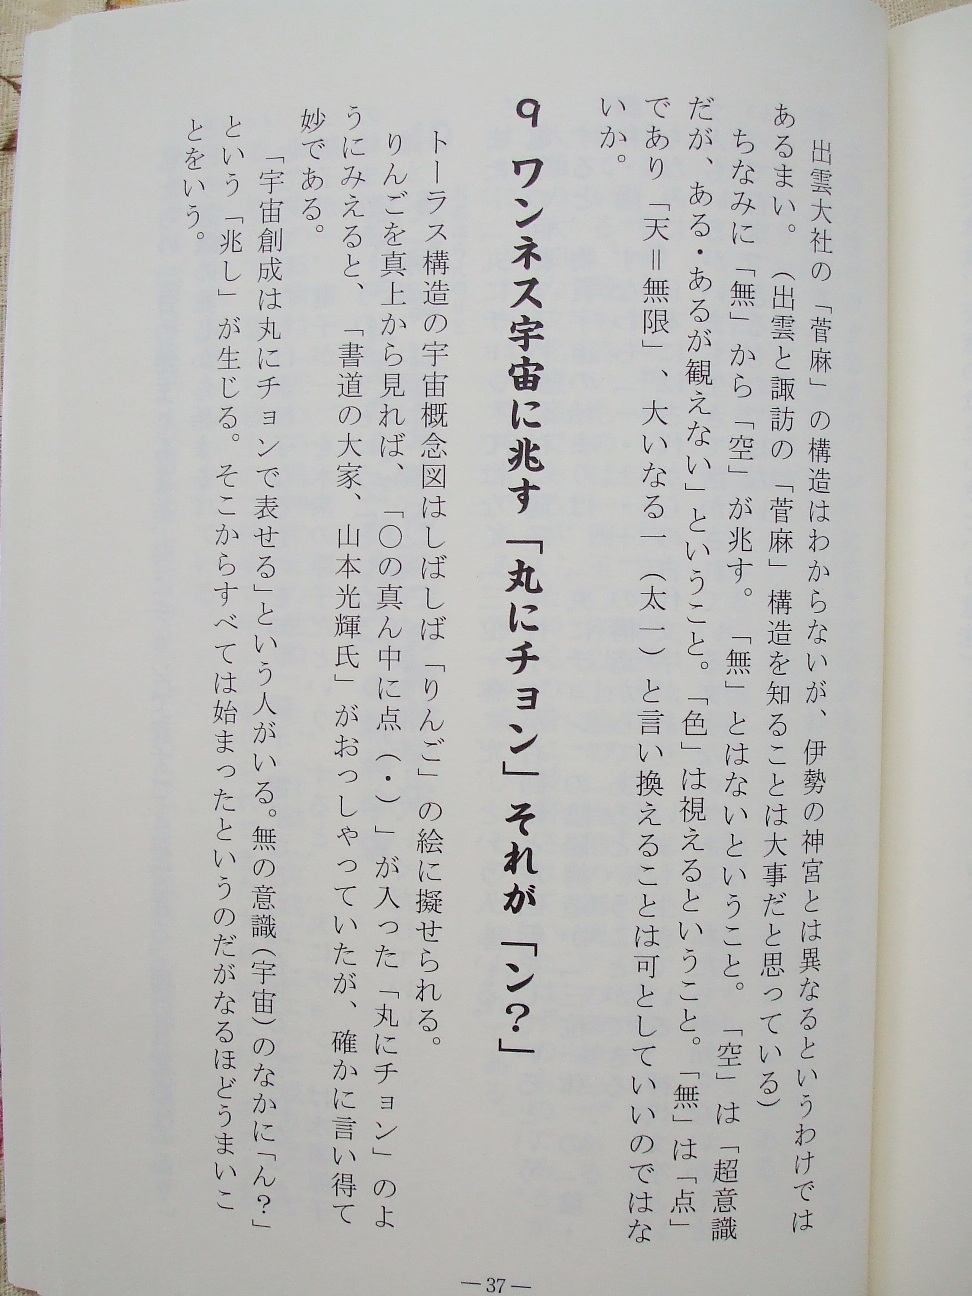 出雲大社の「菅麻」の構造はわからないが、伊勢の神宮とは異なるというわけでは
あるまい。（出雲と諏訪の「菅麻」構造を知ることは大事だと思っている）
ちなみに「無」から「空」が兆す。「無」とはないということ。「空」は「超意識
だが、ある・あるが観えない」ということ。「色」は視えるということ。「無」は「点」
であり「天＝無限」、大いなる一（太一）と言い換えることは可としていいのではな
いか。
９　ワンネス宇宙に兆す「丸にチョン」それが「ン？」
トーラス構造の宇宙概念図はしばしば「りんご」の絵に擬せられる。
りんごを真上から見れば、「〇の真ん中に点（・）」が入った「丸にチョン」のよ
うにみえると、「書道の大家、山本光輝氏」がおっしゃっていたが、確かに言い得て
妙である。
「宇宙創成は丸にチョンで表せる」という人がいる。無の意識（宇宙）のなかに「ん？」
という「兆し」が生じる。そこからすべては始まったというのだがなるほどうまいこ
とをいう。
― 37 ―